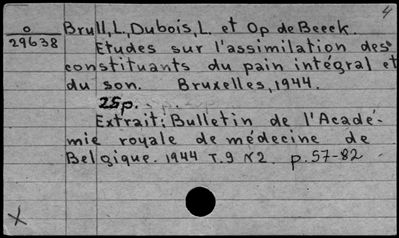 4
o Brull, L., Dubois, L. et Op de Beeck.
29638 Etudes sur l'assimilation des
constituants du pain intégral et
du son. Bruxelles, 1944.
25p.
Extrait: Bulletin de l'Acadé-
mie royale de médecine de
Belgique. 1944 T.9 N2. p.57-82
X